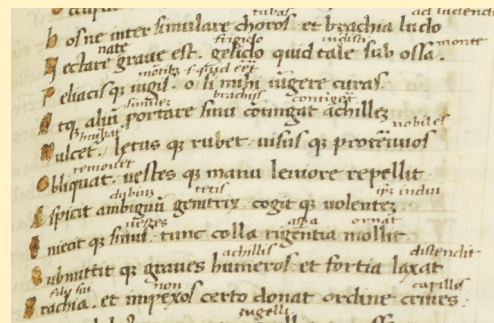 tubas ad ludendū
h osne inter simulare choros . et brachia ludo
nate frigido uidisti monte
N ectare graue est . gelido quid tale sub ossa .
P eliacis q; iugis . o si mihi iūgere curas .
similez brachijs
A tq; aliū portare sinu cōtingat achillez
nobiles
M ulcet . letus q; rubet . uisus q; proteruos
remouet
O bliquat . uestes q; manu leuiore repellit
dubiuz tetis
A spicit ambiguū genitrix . cogit q; uolentez
uestes aspa ornat
I niecit q; sinus . tunc colla rigentia mollit .
achillis distendit
S ubmittit q; graues humeros . et fortia laxat
filij sui non capillos
B rachia . et impexos certo donat ordine crines .